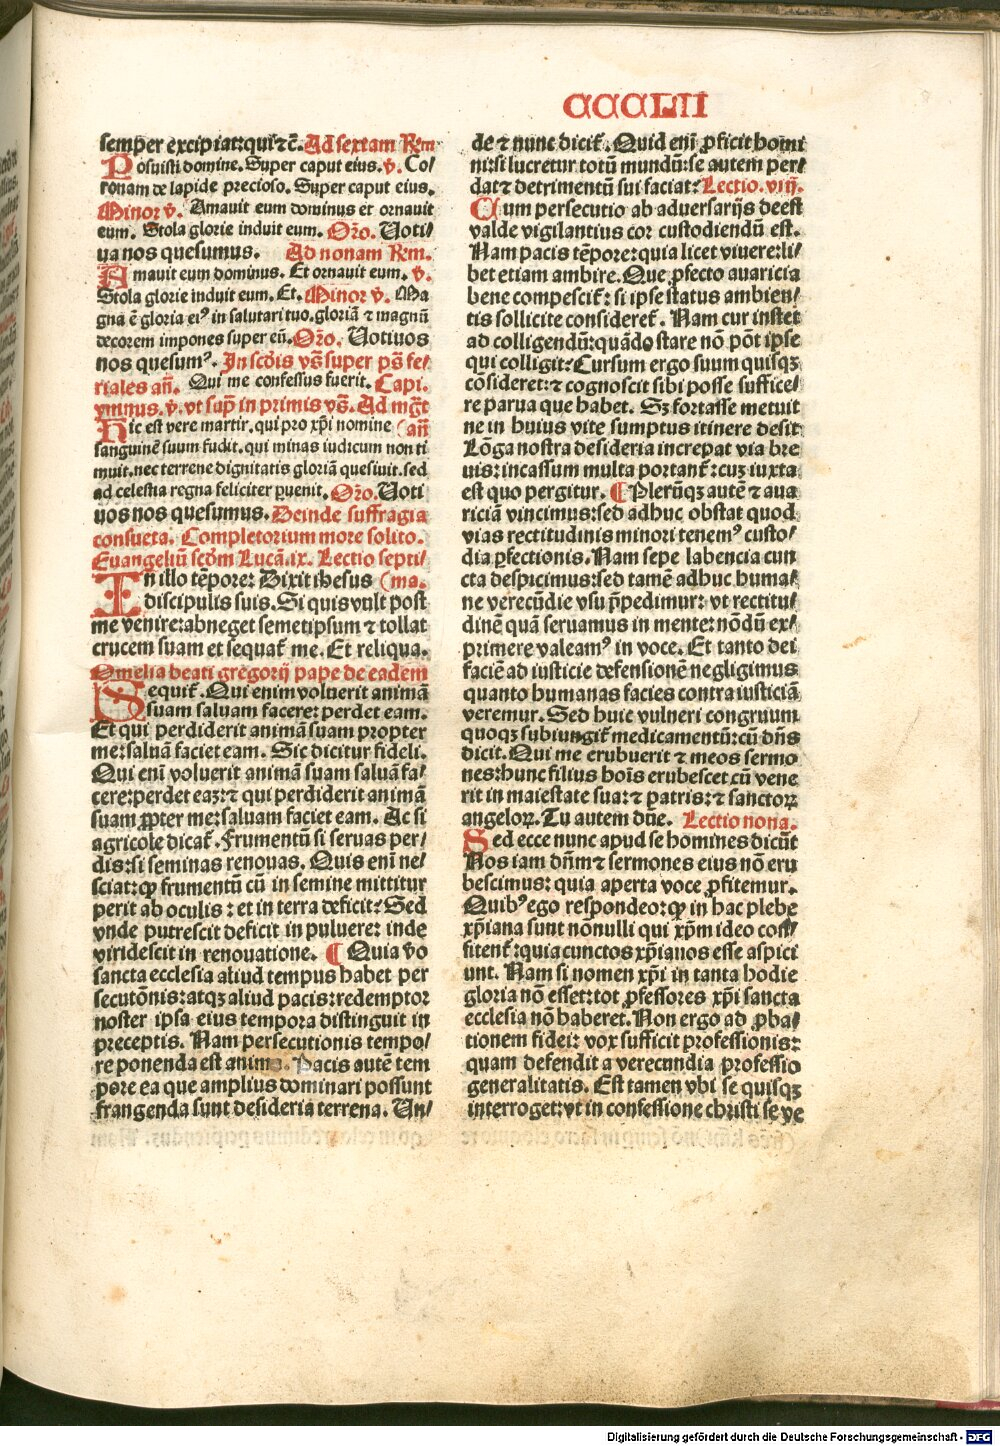 CCCCLII
semper excipiat: qui ⁊c̄. Ad sextam R̃m
Posuisti domine. Super caput eius. v̄. Co/
ronam de lapide precioso. Super caput eius.
Minor v̄. Amauit eum dominus et ornauit
eum. Stola glorie induit eum. Orō. Uoti/
ua nos quesumus. Ad nonam R̃m.
Amauit eum dominus. Et ornauit eum. v̄.
Stola glorie induit eum. Et. Minor v̄. Ma
gna ē gloria eiꝰ in salutari tuo. gloriā ⁊ magnū
decorem impones super eū. Orō. Uotiuos
nos quesumꝰ. In scd̄is vs̄ super ps̄ fe/
riales an̄. Qui me confessus fuerit. Capi.
ymnus. v̄. vt sup̄ in primis vs̄. Ad mgt̄
Hic est vere martir. qui pro xp̄i nomine (an̄
sanguinē suum fudit. qui minas iudicum non ti
muit. nec terrene dignitatis gloriā quesiuit. sed
ad celestia regna feliciter ꝑuenit. Orō. Uoti
uos nos quesumus. Deinde suffragia
consueta. Completorium more solito.
Euangeliū scd̄m Lucā. ix. Lectio septi/
In illo tēpore: Dixit ihesus (ma.
discipulis suis. Si quis vult post
me venire: abneget semetipsum ⁊ tollat
crucem suam et sequat̄ me. Et reliqua.
Omelia beati gregorij pape de eadem
Sequit̄. Qui enim voluerit animā
suam saluam facere: perdet eam.
Et qui perdiderit animā suam propter
me: saluā faciet eam. Sic dicitur fideli.
Qui enī voluerit animā suam saluā fa/
cere: perdet eaꝫ: ⁊ qui perdiderit animā
suam ꝓpter me: saluam faciet eam. Ac si
agricole dicat̄. Frumentū si seruas per/
dis: si seminas renouas. Quis enī ne/
sciat: ꝙ frumentū cū in semine mittitur
perit ab oculis: et in terra deficit? Sed
vnde putrescit deficit in puluere: inde
viridescit in renouatione. ¶ Quia v̄o
sancta ecclesia aliud tempus habet per
secutōnis: atqꝫ aliud pacis: redemptor
noster ipsa eius tempora distinguit in
preceptis. Nam persecutionis tempo/
re ponenda est anima. Pacis autē tem
pore ea que amplius dominari possunt
frangenda sunt desideria terrena. Un/
de ⁊ nunc dicit̄. Quid enī ꝓficit homi
ni: si lucretur totū mundū: se autem per/
dat ⁊ detrimentū sui faciat? Lectio. viij.
Cum persecutio ab aduersarijs deest
valde vigilantius cor custodiendū est.
Nam pacis tēpore: quia licet viuere: li/
bet etiam ambire. Que ꝓfecto auaricia
bene compescit̄: si ipse status ambien/
tis sollicite consideret̄. Nam cur instet
ad colligendū: quādo stare nō pōt ipse
qui colligit? Cursum ergo suum quisqꝫ
cōsideret: ⁊ cognoscit sibi posse suffice/
re parua que habet. Sꝫ fortasse metuit
ne in huius vite sumptus itinere desit
Lōga nostra desideria increpat via bre
uis: incassum multa portant̄: cuꝫ iuxta
est quo pergitur. ¶ Plerūqꝫ autē ⁊ aua
riciā vincimus: sed adhuc obstat quod
vias rectitudinis minori tenemꝰ custo/
dia ꝑfectionis. Nam sepe labencia cun
cta despicimus: sed tamē adhuc huma/
ne verecūdie vsu p̄pedimur: vt rectitu/
dinē quā seruamus in mente: nōdū ex/
primere valeamꝰ in voce. Et tanto dei
faciē ad iusticie defensionē negligimus
quanto humanas facies contra iusticiā
veremur. Sed huic vulneri congruum
quoqꝫ subiungit̄ medicamentū: cū dn̄s
dicit. Qui me erubuerit ⁊ meos sermo
nes: hunc filius hoīs erubescet cū vene
rit in maiestate sua: ⁊ patris: ⁊ sanctoꝝ
angeloꝝ. Tu autem dn̄e. Lectio nona.
Sed ecce nunc apud se homines dicūt
Nos iam dn̄m ⁊ sermones eius nō eru
bescimus: quia aperta voce ꝓfitemur.
Quibꝰ ego respondeo: ꝙ in hac plebe
xp̄iana sunt nōnulli qui xp̄m ideo con/
fitent̄: quia cunctos xp̄ianos esse aspici
unt. Nam si nomen xp̄i in tanta hodie
gloria nō esset: tot ꝓfessores xp̄i sancta
ecclesia nō haberet. Non ergo ad ꝓba/
tionem fidei: vox sufficit professionis:
quam defendit a verecundia professio
generalitatis. Est tamen vbi se quisqꝫ
interroget: vt in confessione christi se ve
Digitalisierung gefördert durch die Deutsche Forschungsgemeinschaft - DFG